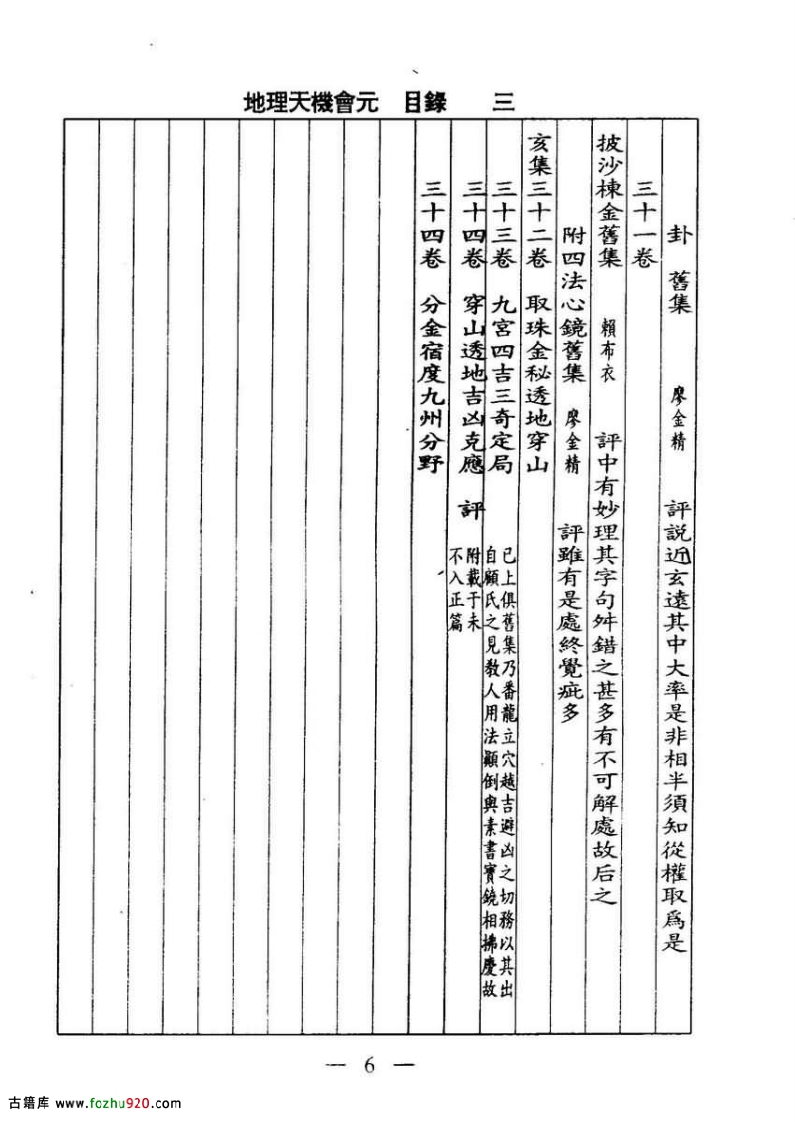 地理天機會元　目錄　三
卦　舊集　廖金精　評說近玄遠其中大率是非相半須知從權取爲是
三十一卷
披沙棟金舊集　賴布衣　評中有妙理其字句舛錯之甚多有不可解處故后之
附四法心鏡舊集　廖金精　評雖有是處終覺疵多
亥集三十二卷　取珠金秘透地穿山
三十三卷　九宮四吉三奇定局
三十四卷　穿山透地吉凶克應　評
已上俱舊集乃番龍立穴越吉避凶之切務以其出
自顧氏之見教人用法顛倒與素書寶鏡相拂慶故
附載于未
不入正篇
三十四卷　分金宿度九州分野
— 6 —
古籍库 www.fozhu920.com